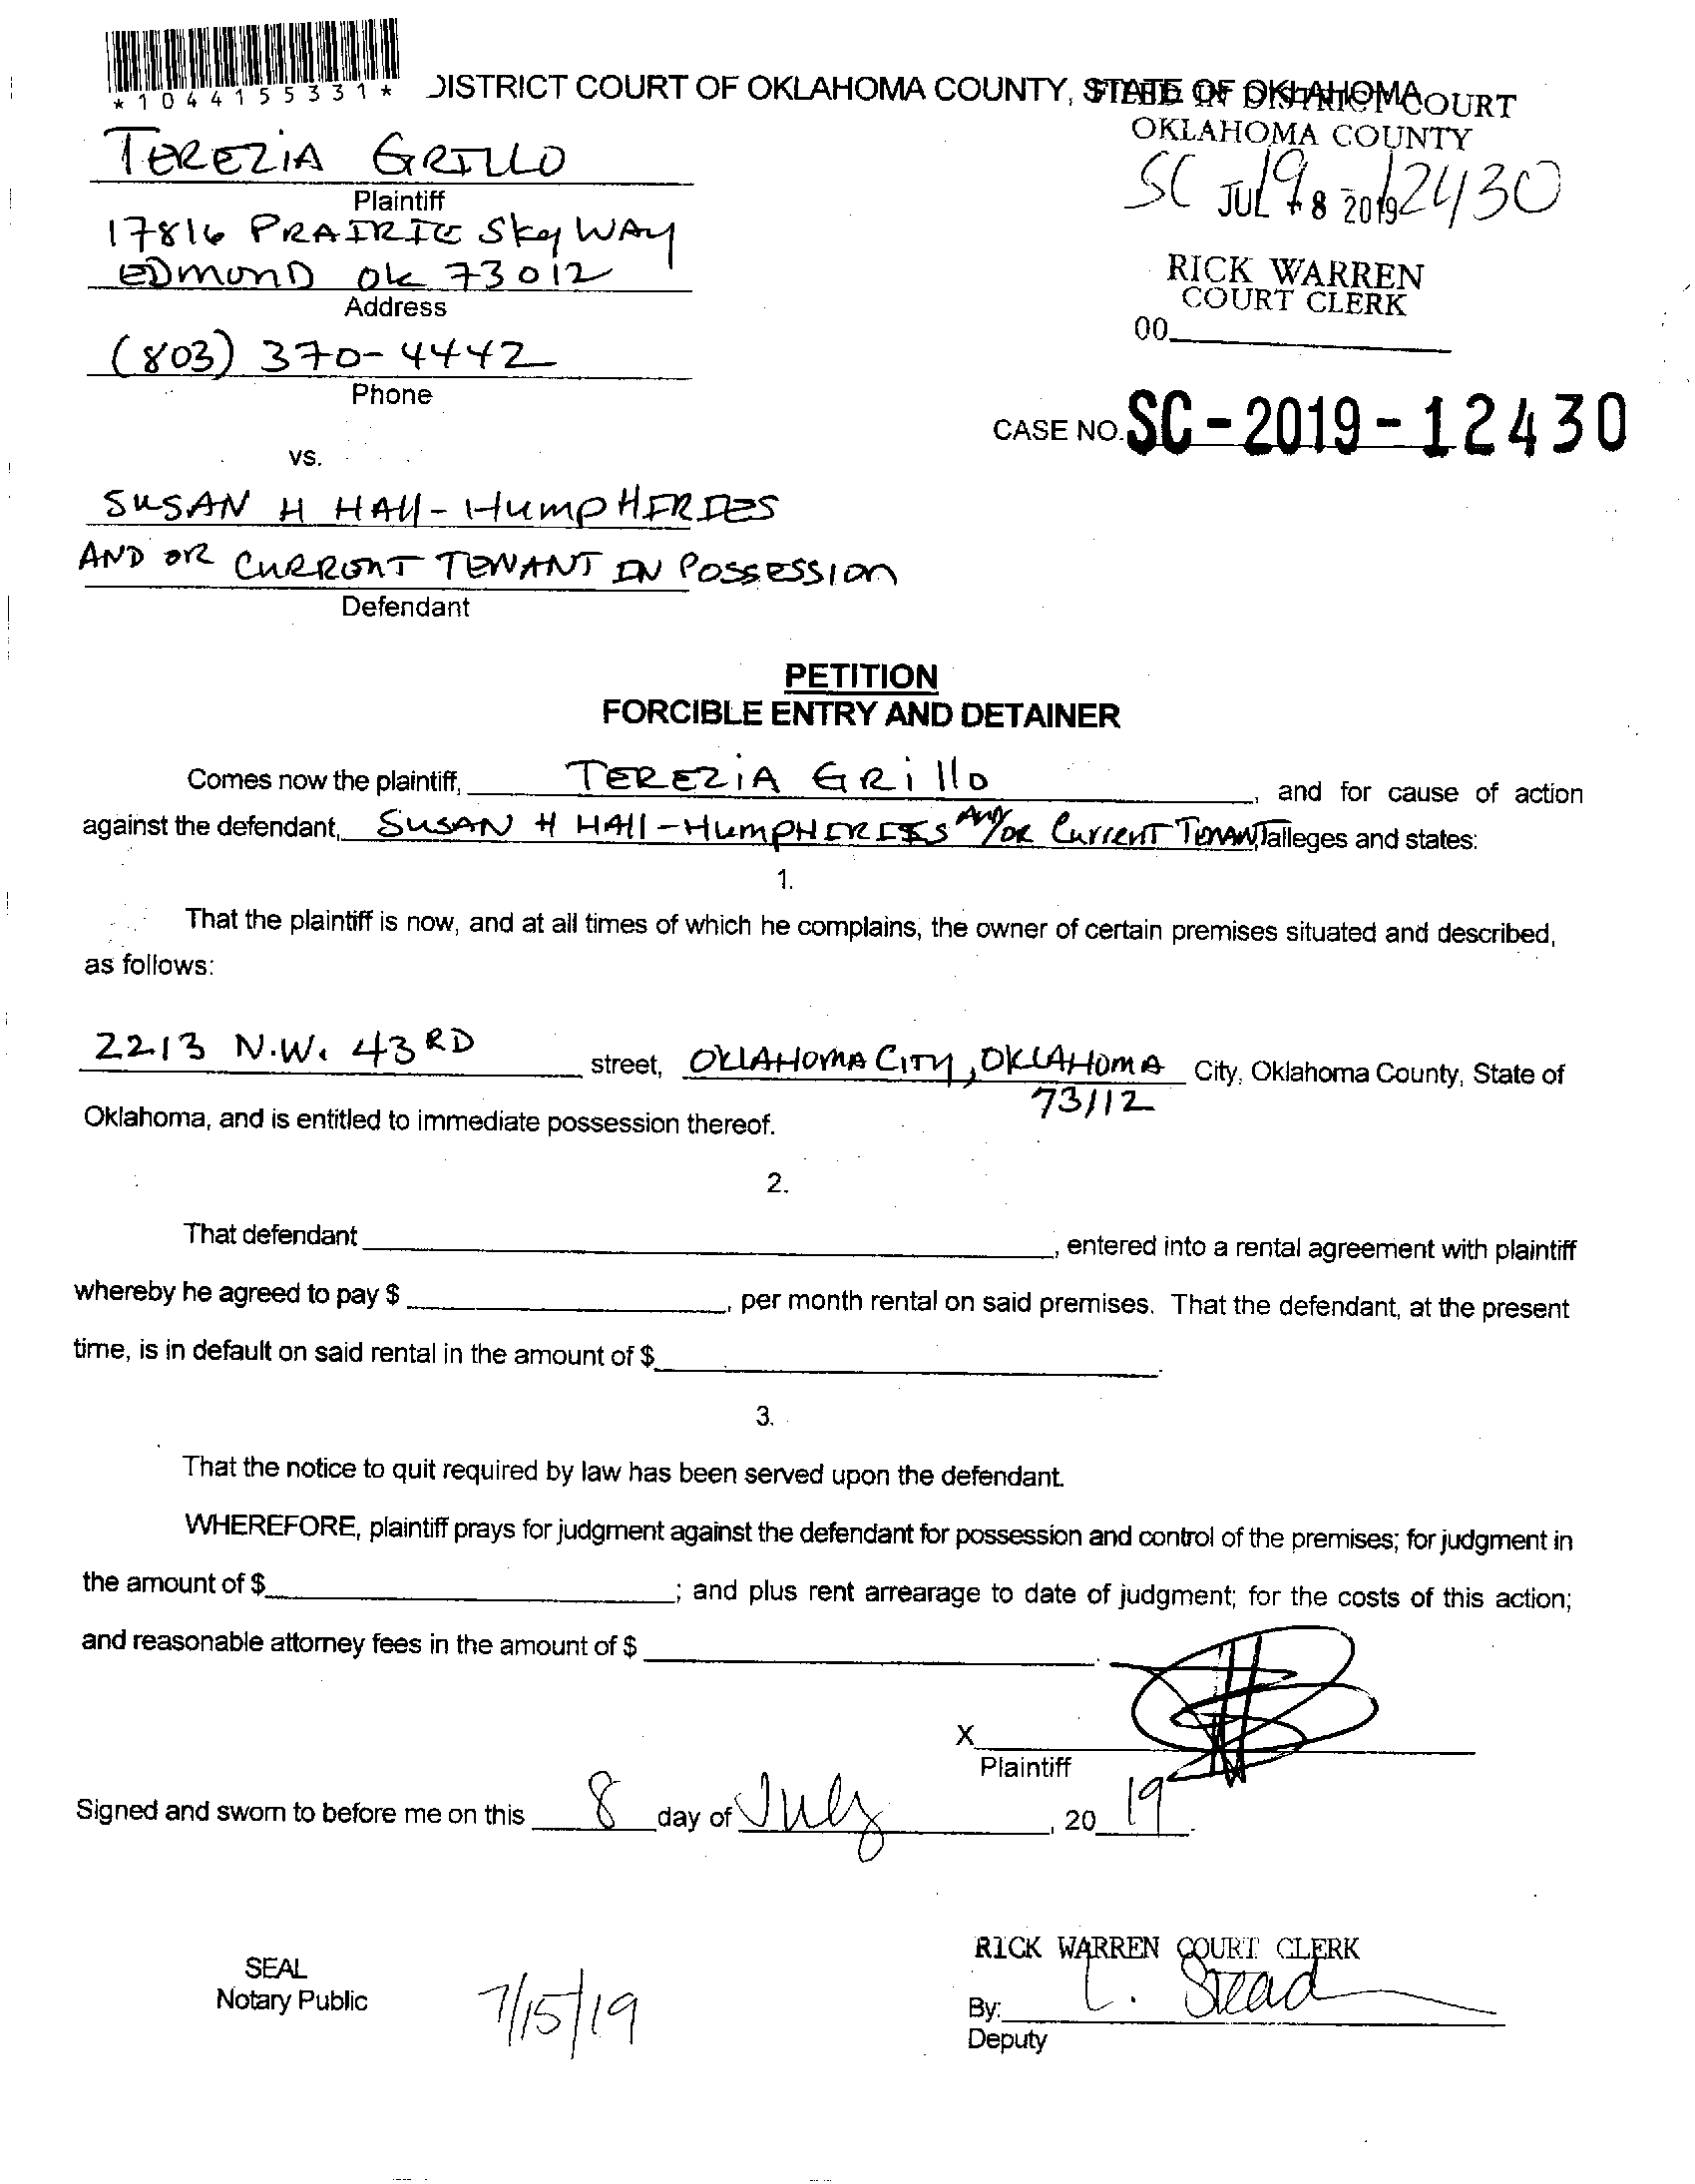 *1044155331*
DISTRICT COURT OF OKLAHOMA COUNTY, STATE OF OKLAHOMA
FILED IN DISTRICT COURT
OKLAHOMA COUNTY
TEREZIA GRILLO
Plaintiff
SC 19-12430
JUL -8 2019
17816 PRAIRIE Sky WAY
EDMOND OK 73012
Address
RICK WARREN
COURT CLERK
00
(803) 370-4442
Phone
CASE NO. SC-2019-12430
vs.
SUSAN H HAll-HumpHERIES
AND OR CURRENT TENANT IN POSSESSION
Defendant
PETITION
FORCIBLE ENTRY AND DETAINER
Comes now the plaintiff, TEREZIA GRillo, and for cause of action
against the defendant, SUSAN H HAll-HUMPHERIES AND/OR Current TENANT alleges and states:
1.
That the plaintiff is now, and at all times of which he complains, the owner of certain premises situated and described,
as follows:
2213 N.W. 43RD street, OKLAHOMA CITY, OKLAHOMA City, Oklahoma County, State of
73112
Oklahoma, and is entitled to immediate possession thereof.
2.
That defendant, entered into a rental agreement with plaintiff
whereby he agreed to pay $, per month rental on said premises. That the defendant, at the present
time, is in default on said rental in the amount of $.
3.
That the notice to quit required by law has been served upon the defendant.
WHEREFORE, plaintiff prays for judgment against the defendant for possession and control of the premises; for judgment in
the amount of $; and plus rent arrearage to date of judgment; for the costs of this action;
and reasonable attorney fees in the amount of $.
X
Plaintiff
Signed and sworn to before me on this 8 day of July, 20 19.
RICK WARREN COURT CLERK
SEAL
Notary Public
7/15/19
By: L. Stead
Deputy